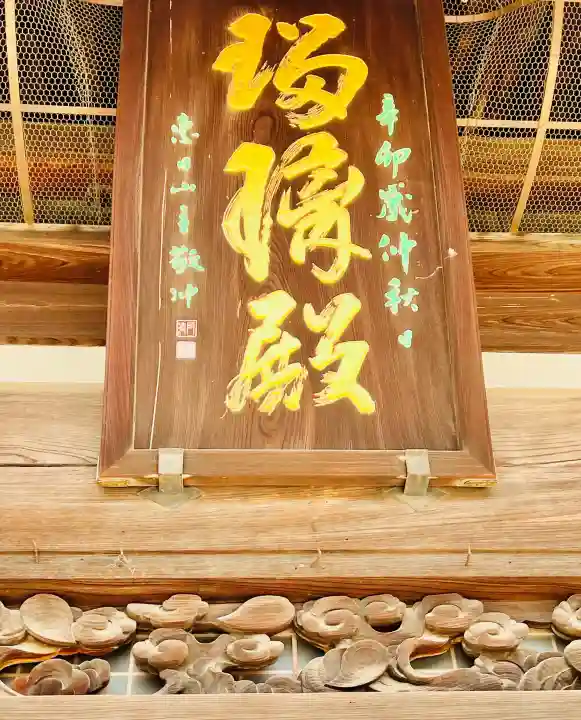 辛卯歳仲秋日
瑠璃殿
恵日山主敬冲